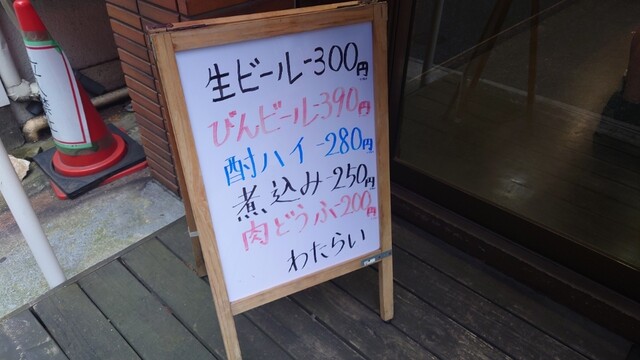 生ビール-300円
びんビール-390円
酎ハイ-280円
煮込み-250円
肉どうふ-200円
わたらい